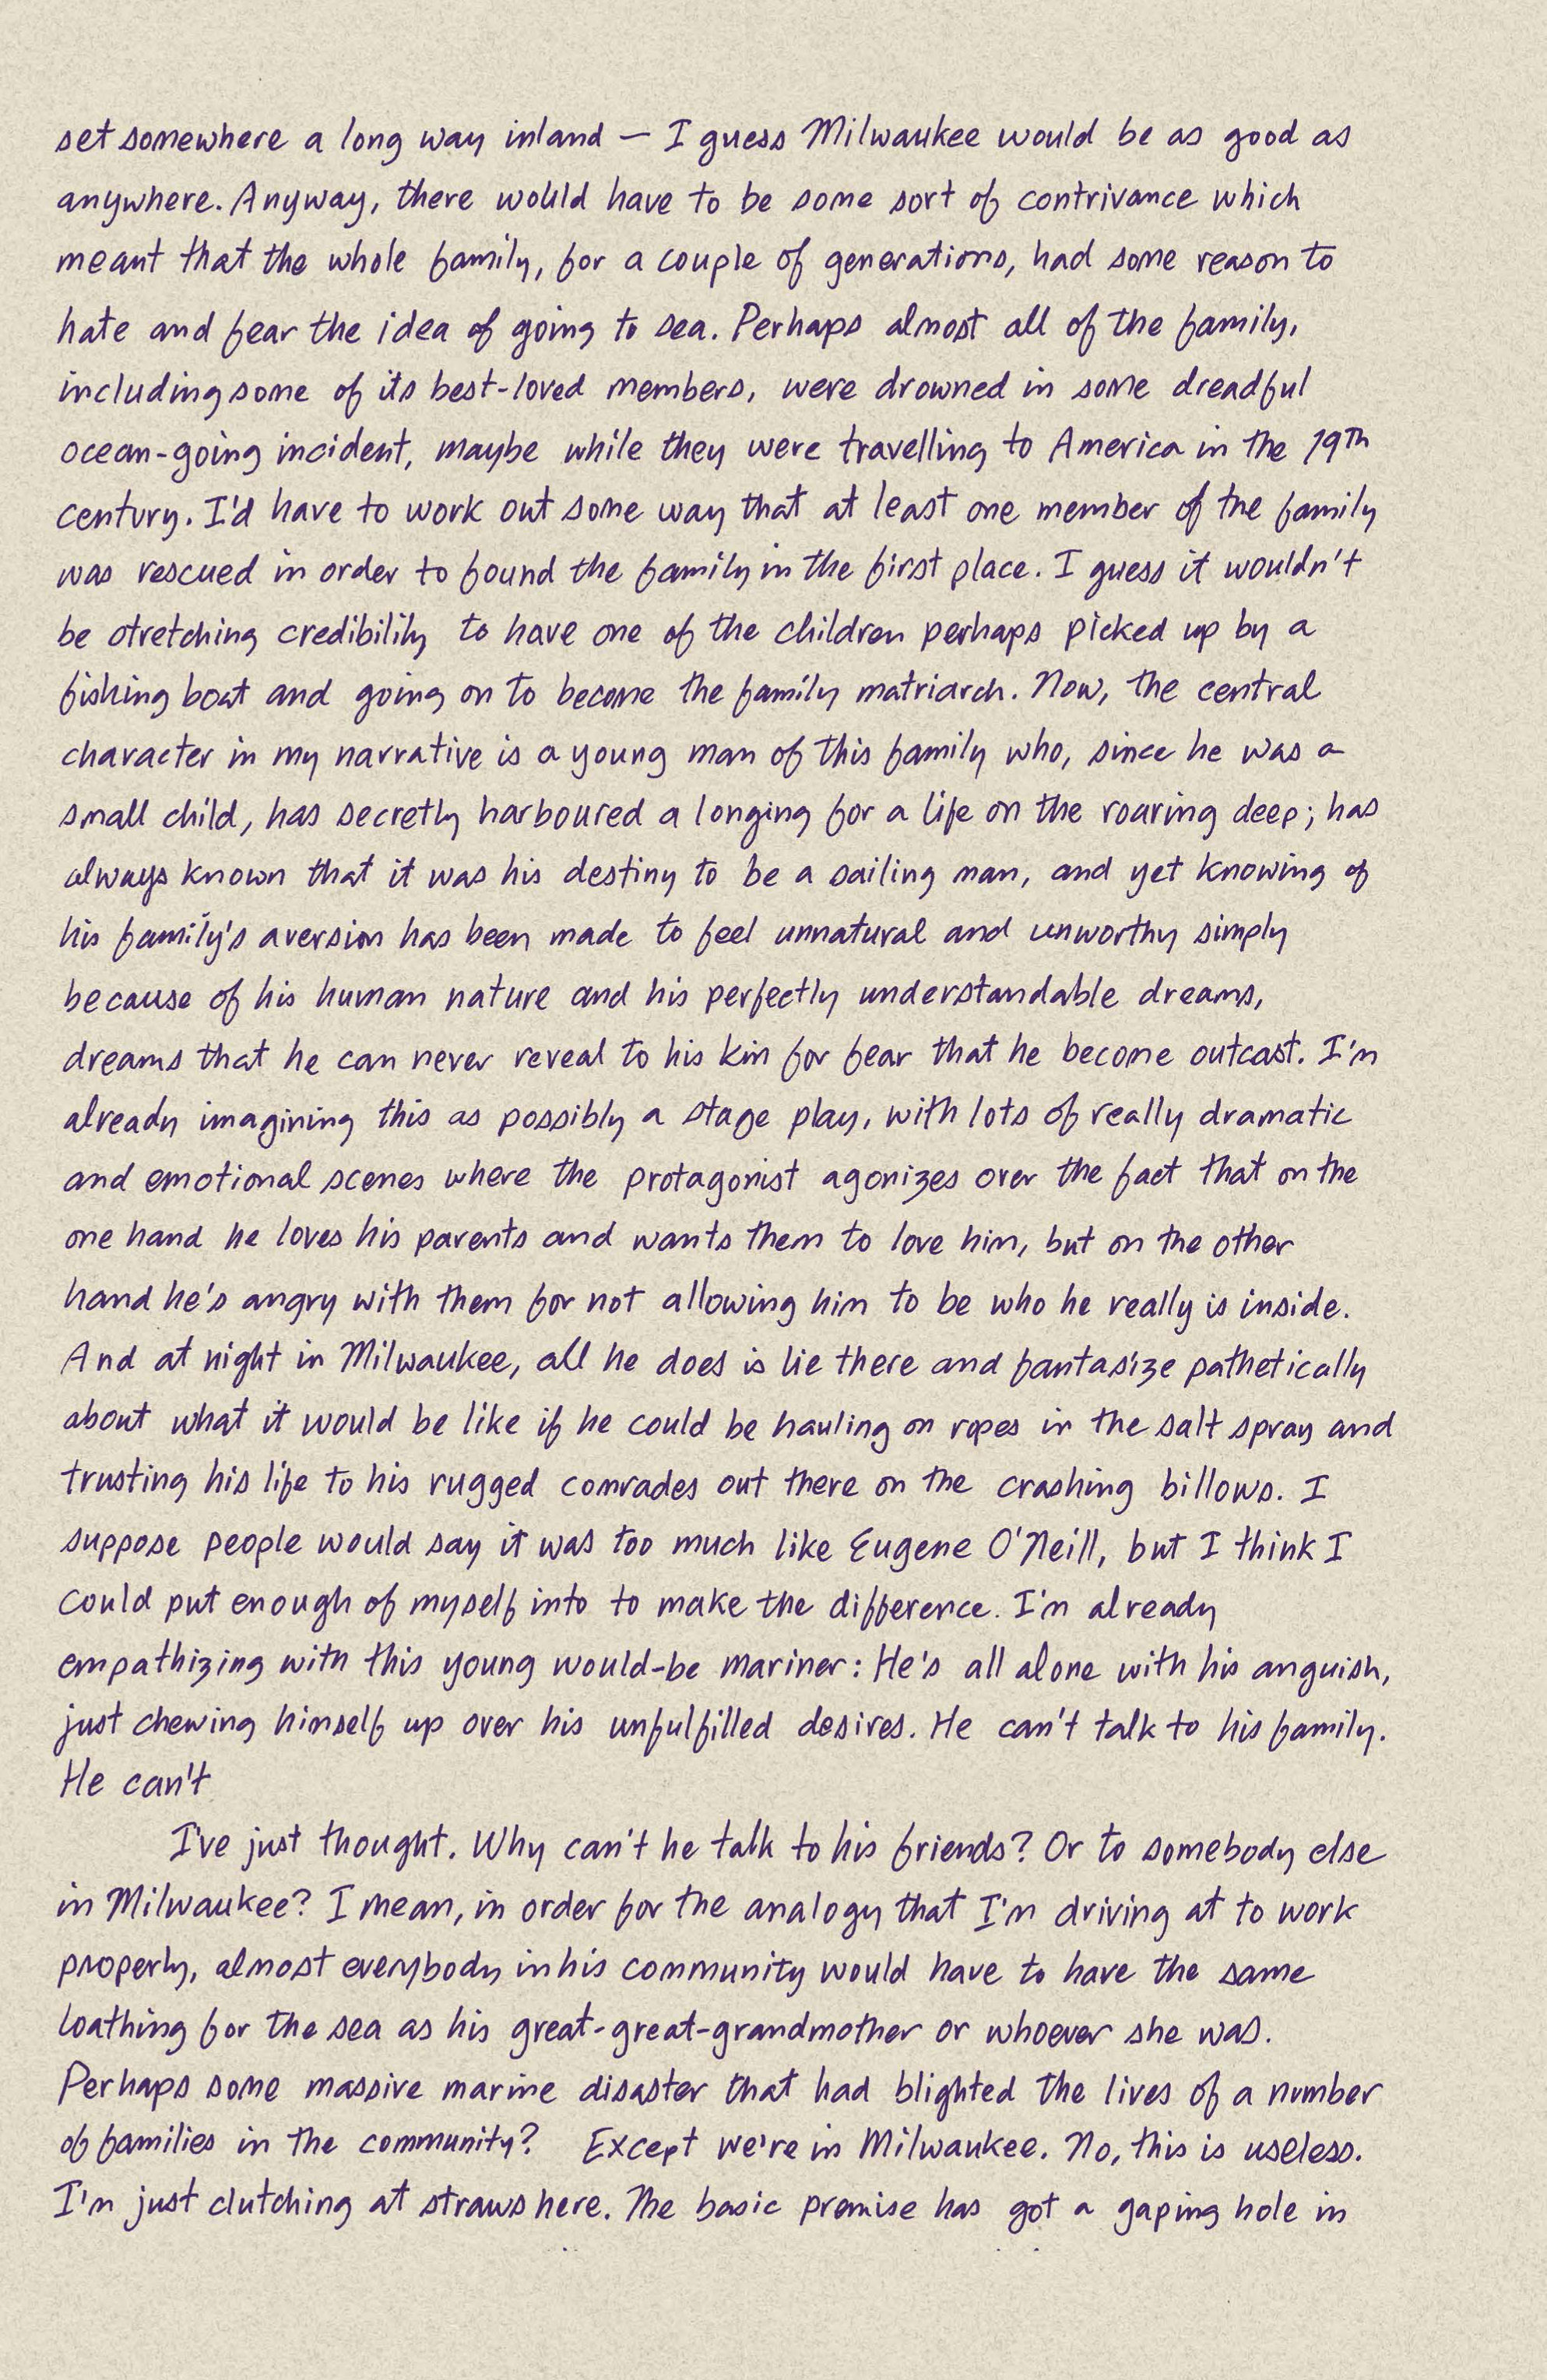 set somewhere a long way inland — I guess Milwaukee would be as good as
anywhere. Anyway, there would have to be some sort of contrivance which
meant that the whole family, for a couple of generations, had some reason to
hate and fear the idea of going to sea. Perhaps almost all of the family,
including some of its best-loved members, were drowned in some dreadful
ocean-going incident, maybe while they were travelling to America in the 19th
century. I'd have to work out some way that at least one member of the family
was rescued in order to found the family in the first place. I guess it wouldn't
be stretching credibility to have one of the children perhaps picked up by a
fishing boat and going on to become the family matriarch. Now, the central
character in my narrative is a young man of this family who, since he was a
small child, has secretly harboured a longing for a life on the roaring deep; has
always known that it was his destiny to be a sailing man, and yet knowing of
his family's aversion has been made to feel unnatural and unworthy simply
because of his human nature and his perfectly understandable dreams,
dreams that he can never reveal to his kin for fear that he become outcast. I'm
already imagining this as possibly a stage play, with lots of really dramatic
and emotional scenes where the protagonist agonizes over the fact that on the
one hand he loves his parents and wants them to love him, but on the other
hand he's angry with them for not allowing him to be who he really is inside.
And at night in Milwaukee, all he does is lie there and fantasize pathetically
about what it would be like if he could be hauling on ropes in the salt spray and
trusting his life to his rugged comrades out there on the crashing billows. I
suppose people would say it was too much like Eugene O'Neill, but I think I
could put enough of myself into to make the difference. I'm already
empathizing with this young would-be mariner: He's all alone with his anguish,
just chewing himself up over his unfulfilled desires. He can't talk to his family.
He can't
I've just thought. Why can't he talk to his friends? Or to somebody else
in Milwaukee? I mean, in order for the analogy that I'm driving at to work
properly, almost everybody in his community would have to have the same
loathing for the sea as his great-great-grandmother or whoever she was.
Perhaps some massive marine disaster that had blighted the lives of a number
of families in the community? Except we're in Milwaukee. No, this is useless.
I'm just clutching at straws here. The basic premise has got a gaping hole in